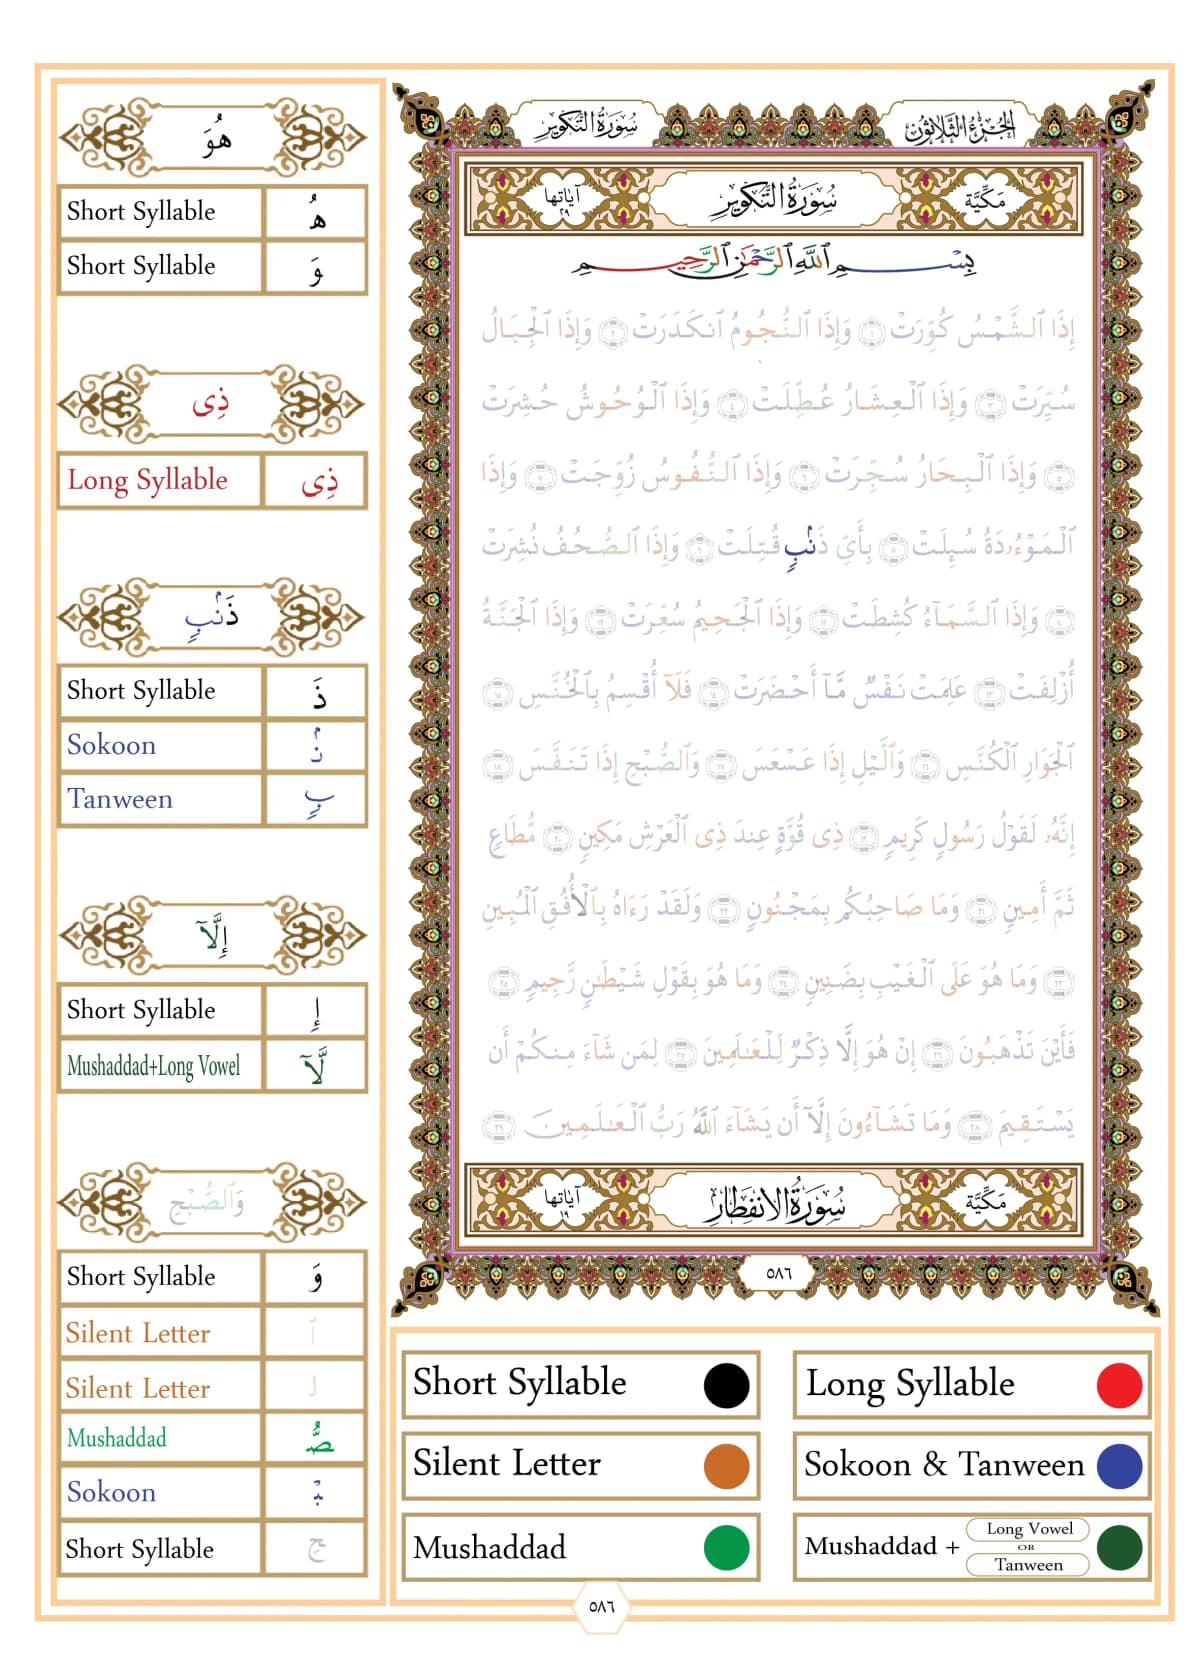 سُورَةُ التَّكْوِيرِ
الجُزْءُ الثَّلَاثُونَ
مَكِّيَّة
سُورَةُ التَّكْوِيرِ
آيَاتها ٢٩
بِسْمِ ٱللَّهِ ٱلرَّحْمَٰنِ ٱلرَّحِيمِ
إِذَا ٱلشَّمْسُ كُوِّرَتْ ١ وَإِذَا ٱلنُّجُومُ ٱنكَدَرَتْ ٢ وَإِذَا ٱلْجِبَالُ
سُيِّرَتْ ٣ وَإِذَا ٱلْعِشَارُ عُطِّلَتْ ٤ وَإِذَا ٱلْوُحُوشُ حُشِرَتْ
٥ وَإِذَا ٱلْبِحَارُ سُجِّرَتْ ٦ وَإِذَا ٱلنُّفُوسُ زُوِّجَتْ ٧ وَإِذَا
ٱلْمَوْءُۥدَةُ سُئِلَتْ ٨ بِأَيِّ ذَنۢبٍ قُتِلَتْ ٩ وَإِذَا ٱلصُّحُفُ نُشِرَتْ
١٠ وَإِذَا ٱلسَّمَآءُ كُشِطَتْ ١١ وَإِذَا ٱلْجَحِيمُ سُعِّرَتْ ١٢ وَإِذَا ٱلْجَنَّةُ
أُزْلِفَتْ ١٣ عَلِمَتْ نَفْسٌ مَّآ أَحْضَرَتْ ١٤ فَلَآ أُقْسِمُ بِٱلْخُنَّسِ ١٥
ٱلْجَوَارِ ٱلْكُنَّسِ ١٦ وَٱلَّيْلِ إِذَا عَسْعَسَ ١٧ وَٱلصُّبْحِ إِذَا تَنَفَّسَ ١٨
إِنَّهُۥ لَقَوْلُ رَسُولٍ كَرِيمٍ ١٩ ذِى قُوَّةٍ عِندَ ذِى ٱلْعَرْشِ مَكِينٍ ٢٠ مُّطَاعٍ
ثَمَّ أَمِينٍ ٢١ وَمَا صَاحِبُكُم بِمَجْنُونٍ ٢٢ وَلَقَدْ رَءَاهُ بِٱلْأُفُقِ ٱلْمُبِينِ
٢٣ وَمَا هُوَ عَلَى ٱلْغَيْبِ بِضَنِينٍ ٢٤ وَمَا هُوَ بِقَوْلِ شَيْطَٰنٍ رَّجِيمٍ ٢٥
فَأَيْنَ تَذْهَبُونَ ٢٦ إِنْ هُوَ إِلَّا ذِكْرٌ لِّلْعَٰلَمِينَ ٢٧ لِمَن شَآءَ مِنكُمْ أَن
يَسْتَقِيمَ ٢٨ وَمَا تَشَآءُونَ إِلَّآ أَن يَشَآءَ ٱللَّهُ رَبُّ ٱلْعَٰلَمِينَ ٢٩
مَكِّيَّة
سُورَةُ الانفِطَارِ
آيَاتها ١٩
٥٨٦
هُوَ
Short Syllable هُ
Short Syllable وَ
ذِى
Long Syllable ذِى
ذَنۢبٍ
Short Syllable ذَ
Sokoon نۢ
Tanween بٍ
إِلَّآ
Short Syllable إِ
Mushaddad+Long Vowel لَّآ
وَٱلصُّبْحِ
Short Syllable وَ
Silent Letter ٱ
Silent Letter ل
Mushaddad صُّ
Sokoon بْ
Short Syllable حِ
Short Syllable
Long Syllable
Silent Letter
Sokoon & Tanween
Mushaddad
Mushaddad + Long Vowel OR Tanween
٥٨٦